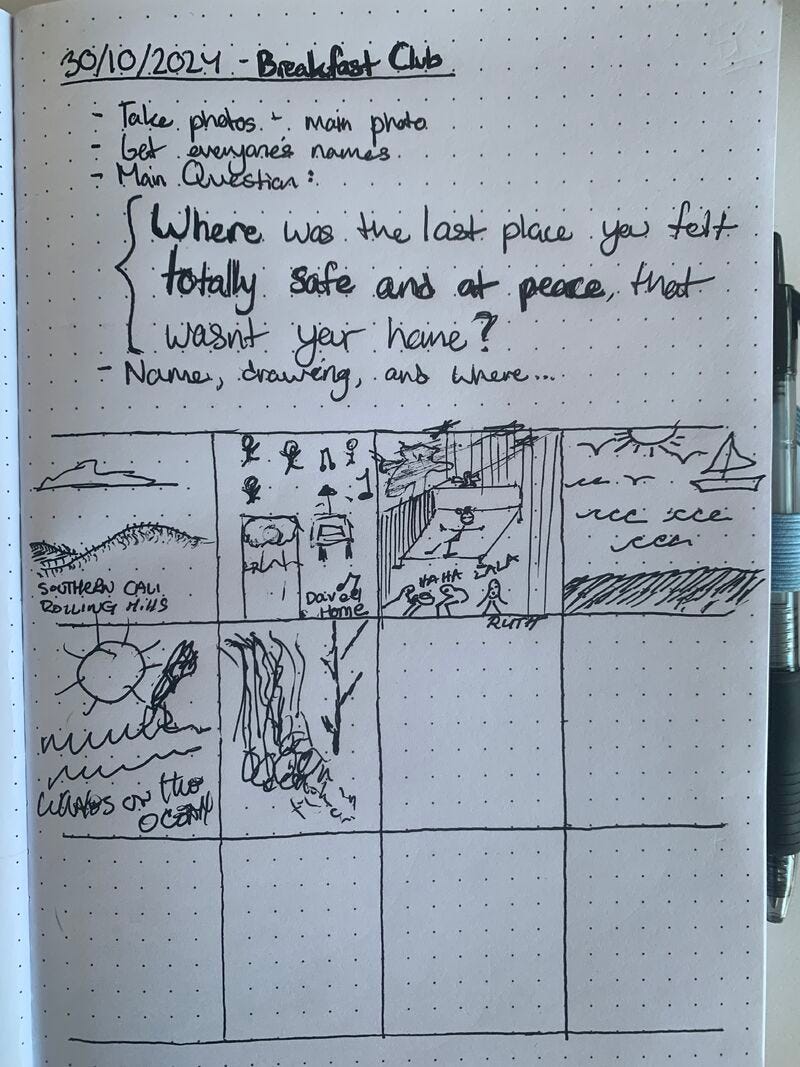 30/10/2024 - Breakfast Club
- Take photos + main photo
- Get everyone's names
- Main Question:
Where was the last place you felt
totally safe and at peace, that
wasn't your home?
- Name, drawing, and where...
SOUTHERN CALI
ROLLING HILLS
Home
HAHA
LALA
RUTH
on the
OCEAN